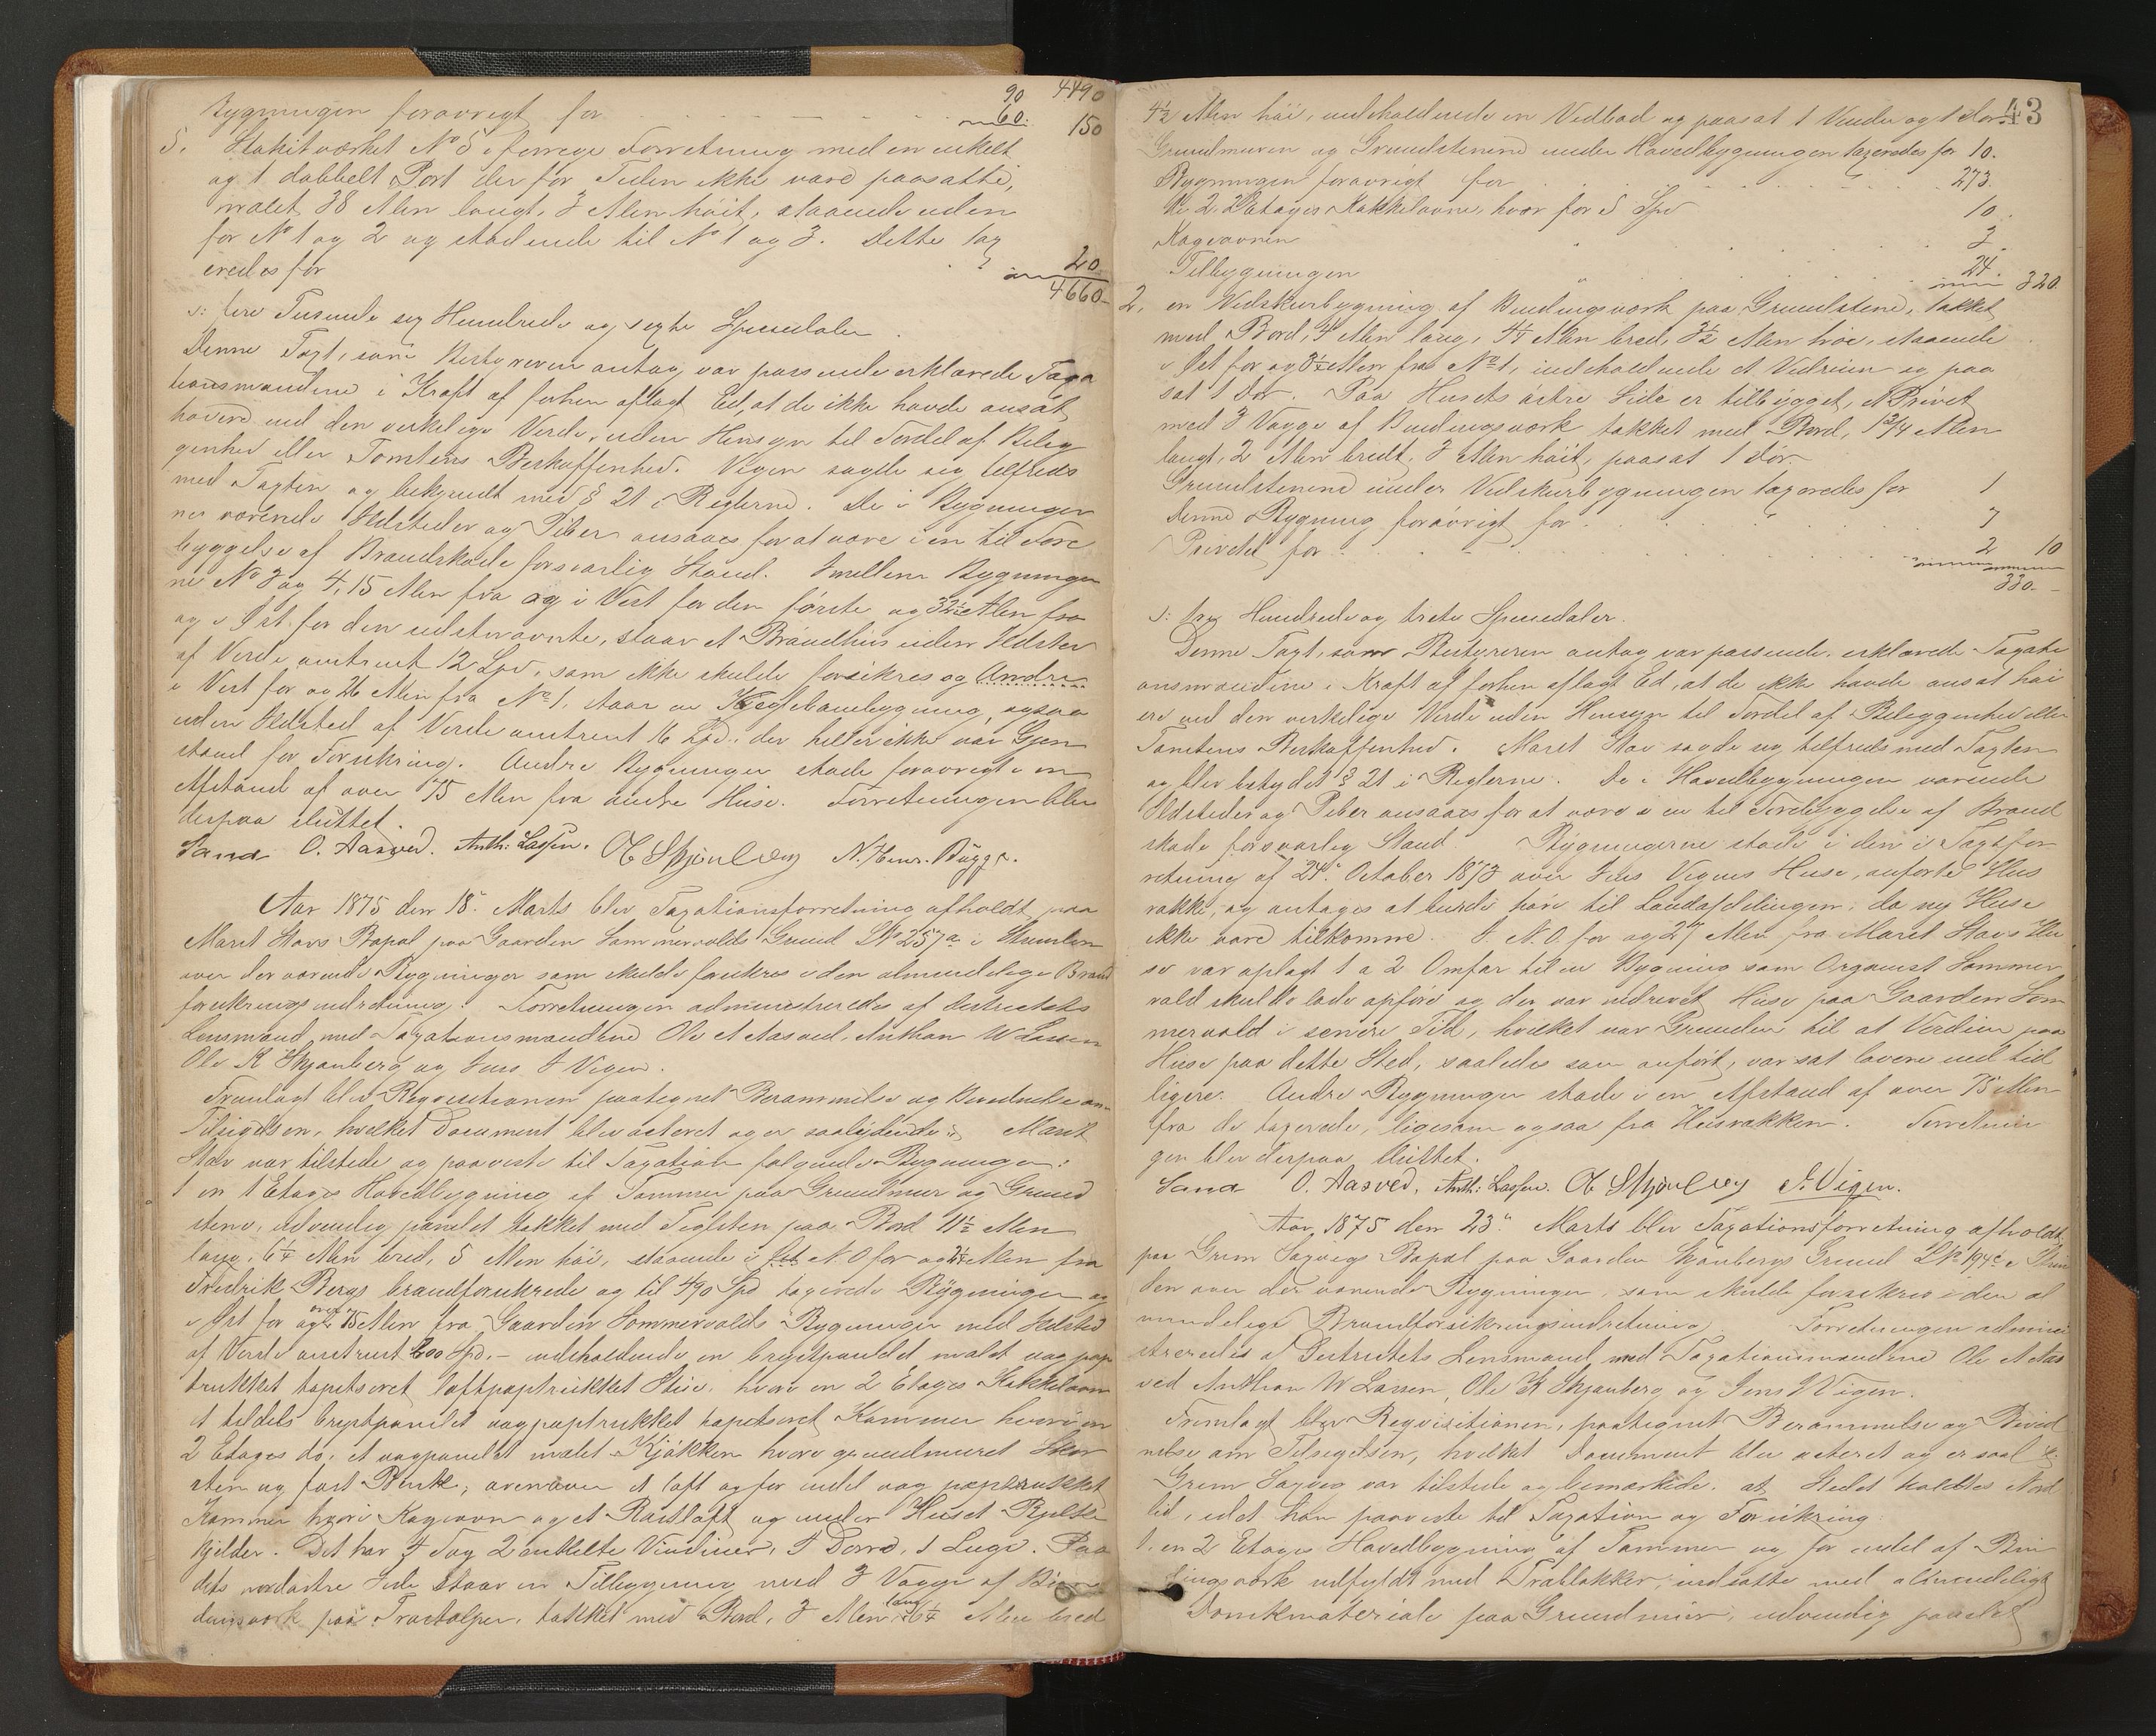 4490
Bygningen forøvrigt for . . . 90
60. 150
5. Stakitværket No 5 i forrige Forretning med en enkelt
og 1 dobbelt Port der for Tiden ikke vare paasatte,
malet 38 Alen langt, 3 Alen høit, staaende uden
for No 1 og 2 og stødende til No 1 og 3. Dette tax
eredes for 20
4660-
s: fire Tusende sex Hundrede og sexti Speciedaler
Denne Taxt, som Bestyreren antog var passende erklærede Taxa
tionsmændene i Kraft af forhen aflagt Ed, at de ikke havde ansat
høiere end den virkelige Verdi, uden Hensyn til Fordel af Beleg
genhed eller Tomtens Beskaffenhed. Vigen sagde sig tilfreds
med Taxten og bekjendt med § 21 i Reglerne. De i Bygninger
ne værende Ildsteder og Piber ansaaes for at være i en til Fore
byggelse af Brandskade forsvarlig Stand. Imellem Bygninger
ne No 3 og 4, 15 Alen fra og i Vest for den første og 32½ Alen fra
og i Øst for den sidstnævnte, staar et Brøndhus uden Ildsted
af Verdi omtrent 12 Spd, som ikke skulde forsikres og Andre
i Vest for og 26 Alen fra No 1, staar en Keglebanebygning, ogsaa
uden Ildsted af Verdi omtrent 16 Spd. der heller ikke var Gjen
stand for Forsikring. Andre Bygninger stode forøvrigt i en
Afstand af over 75 Alen fra andre Huse. Forretningen blev
derpaa sluttet.
Sand O. Aasved. Anth: Lassen. O K Skjønberg N. Henr. Bügge.
Aar 1875 den 18de Marts blev Taxationsforretning afholdt paa
Maret Stavs Bopæl paa Gaarden Sommervolds Grund LNo 257a i Strinden
over der værende Bygninger som skulde forsikres i den almindelige Brand
forsikringsindretning. Forretningen administreredes af Districtets
Lensmand med Taxationsmændene Ole A Aasved, Anthon W Lassen
Ole K Skjønberg og Jens J Vigen.
Fremlagt blev Reqvisitionen paategnet Berammelse og Bevidnelse om
Tilsigelsen, hvilket Document blev acteret og er saalydende: Maret
Stav var tilstede og paaviste til Taxation følgende Bygninger:
1 en 1 Etages Hovedbygning af Tømmer paa Grundmur og Grund
stene, udvendig panelet takket med Teglsten paa Bord 11½ Alen
lang, 6¼ Alen bred, 5 Alen høi, staaende i N. O for og Alen fra
Fredrik Bergs brandforsikrede og til 490 Spd taxerede Bygninger og
i Øst for og over 75 Alen fra Gaarden Sommervolds Bygninger med Ildsted
af Verdi omtrent 600 Spd. - indeholdende en brystpanelet, malet vægpap
trukket tapetseret loftpaptrukket Stue, hvori en 2 Etages Kakkelovn
et tildels brystpanelet vægpaptrukket tapetseret Kammer hvori en
2 Etages do, et vægpanelet malet Kjøkken hvori grundmuret Skor
sten og fast Bænk, ovenover et loft og for endel væg paptrukket
Kammer hvori Kogeovn og et Rastloft og under Huset
kjelder. Det har 4 Fag 2 enkelte Vinduer, 5 Dørre, 1 Luge. Paa
dets nordøstre Side staar en Tilbygning med 3 Vægge af Bin
dingsværk paa Træstolper, takket med Bord, 3 Alen lang 6¼ Alen bred
43
4½ Alen høi, indeholdende en Vedbod og paasat 1 Vindu og 1 Dør.
Grundmuren og Grundstenene under Hovedbygningen taxeredes for 10.
Bygningen forøvrigt for . . . 273.
De 2 2 Etages Kakkelovne, hver for 5 Spd 10.
Kogeovnen . . . 3.
Tilbygningen . . . 24. 320
2. en Vedskurbygning af Bindingsværk paa Grundstene, takket
med Bord, 4 Alen lang, 4¼ Alen bred, 3½ Alen høi, staaende
i Øst for og 3½ Alen fra No 1, indeholdende et Vedrum og paa
sat 1 Dør. Paa Husets østre Side er tilbygget, et Privet
med 3 Vægge af Bindingsværk takket med Bord, 1 3/4 Alen
langt, 2 Alen bredt, 3 Alen høit, paasat 1 dør.
Grundstenene under Vedskurbygningen taxeredes for 1
Denne Bygning forøvrigt for . . . 7
Privetet for . . . 2 10
330.-
s: tre Hundrede og treti Speciedaler.
Denne Taxt, som Bestyreren antog var passende, erklærede Taxati
onsmændene i Kraft af forhen aflagt Ed, at de ikke havde ansat høi
ere end den virkelige Verdi uden Hensyn til Fordel af Beleggenhed eller
Tomtens Beskaffenhed. Maret Stav sagde sig tilfreds med Taxten
og blev betydet § 21 i Reglerne. De i Hovedbygningen værende
Ildsteder og Piber ansaaes for at være i en til Forebyggelse af Brand
skade forsvarlig Stand. Bygningerne stode i den i Taxtfor
retning af 24de October 1873 over Jens Vigens Huse, anførte Hus
række, og antages at burde høre til Landafdelingen, da nye Huse
ikke vare tilkomne. I N. O. for og 27 Alen fra Maret Stavs Hu
se var oplagt 1 a 2 Omfar til en Bygning som Organist Sommer
vold skulde lade opføre og der var nedrevet Huse paa Gaarden Som
mervold i senere Tid, hvilket var Grunden til at Verdien paa
Huse paa dette Sted, saaledes som anført, var sat lavere end tid
ligere. Andre Bygninger stode i en Afstand af over 75 Alen
fra de taxerede, ligesom ogsaa fra Husrækken. Forretnin
gen blev derpaa sluttet.
Sand O. Aasved. Anth: Lassen. O K Skjønberg J. Vigen.
Aar 1875 den 23de Marts blev Taxationsforretning afholdt
paa Bopæl paa Gaarden Skjønbergs Grund LNo 194c i Strin
den over der værende Bygninger, som skulde forsikres i den al
mindelige Brandforsikringsindretning. Forretningen admini
streredes af Districtets Lensmand med Taxationsmændene Ole A Aas
ved Anthon W Lassen, Ole K Skjønberg og Jens J Vigen.
Fremlagt blev Reqvisitionen, paategnet Berammelse og Bevid
nelse om Tilsigelsen, hvilket Document blev acteret og er saal
var tilstede og bemærkede, at Stedet kaldtes Nord
lid, idet han paaviste til Taxation og Forsikring:
1. en 2 Etages Hovedbygning af Tømmer og for endel af Bin
dingsværk udfyldt med Træblokker, indsatte med almindeligt
paa Grundmur, udvendig panelet